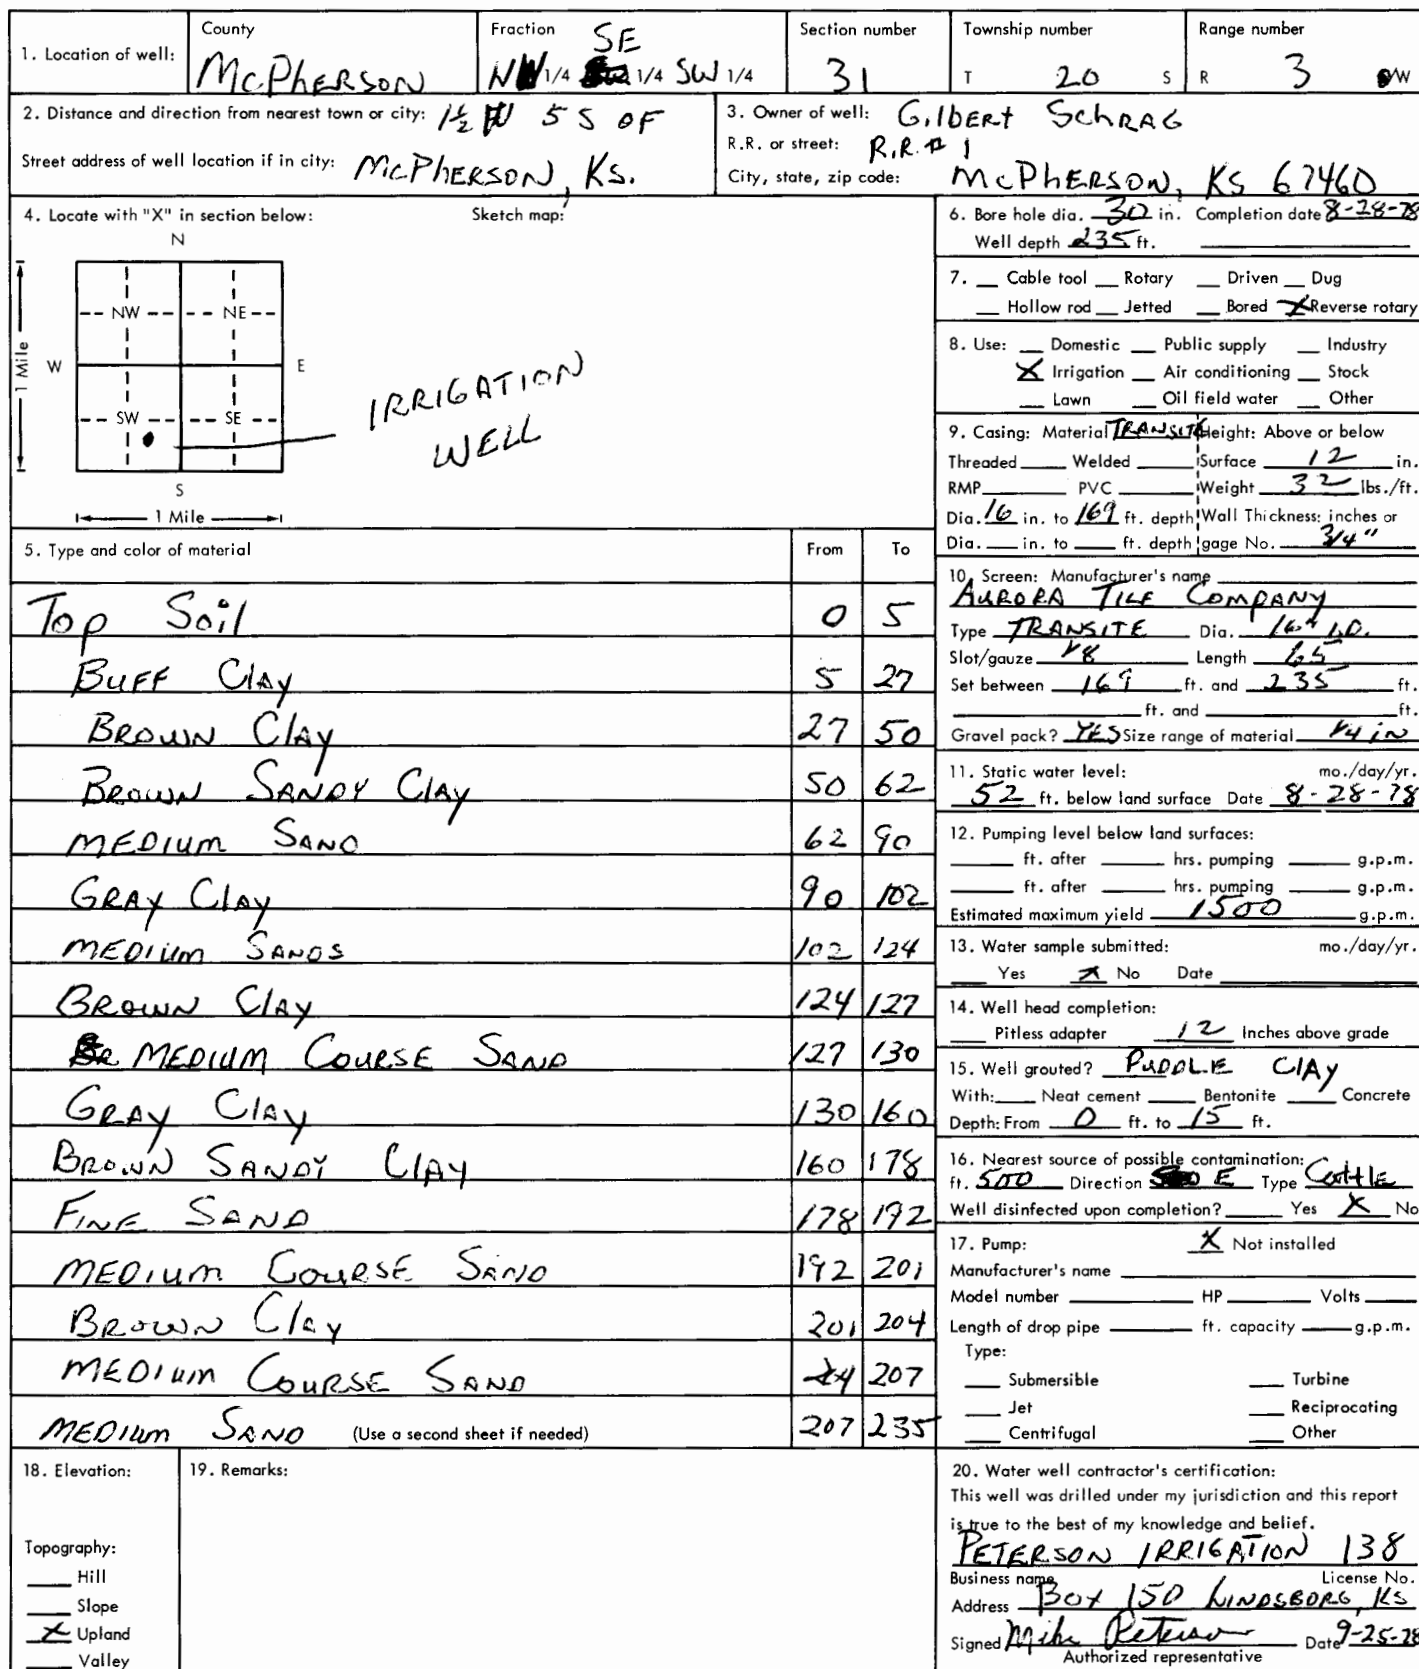 1. Location of well:
County
McPherson
Fraction
SE
NW 1/4 1/4 SW 1/4
Section number
31
Township number
T 20 S
Range number
R 3 W
2. Distance and direction from nearest town or city: 1½ W 5 S OF
Street address of well location if in city: McPHERSON, KS.
3. Owner of well: GilBERT SCHRAG
R.R. or street: R.R.# 1
City, state, zip code: McPHERSON, KS 67460
4. Locate with "X" in section below:
Sketch map:
N
NW NE
W E
1 Mile
SW SE
S
1 Mile
IRRIGATION
WELL
5. Type and color of material From To
Top Soil 0 5
BUFF Clay 5 27
BROWN Clay 27 50
BROWN SANDY Clay 50 62
MEDIUM SAND 62 90
GRAY Clay 90 102
MEDIUM SANDS 102 124
BROWN Clay 124 127
MEDIUM COURSE SAND 127 130
GRAY Clay 130 160
BROWN SANDY Clay 160 178
FINE SAND 178 192
MEDIUM COURSE SAND 192 201
BROWN Clay 201 204
MEDIUM COURSE SAND 207
MEDIUM SAND (Use a second sheet if needed) 207 235
6. Bore hole dia. 30 in. Completion date 8-28-78
Well depth 235 ft.
7. Cable tool Rotary Driven Dug
Hollow rod Jetted Bored X Reverse rotary
8. Use: Domestic Public supply Industry
X Irrigation Air conditioning Stock
Lawn Oil field water Other
9. Casing: Material TRANSITE Height: Above or below
Threaded Welded Surface 12 in.
RMP PVC Weight 32 lbs./ft.
Dia. 16 in. to 169 ft. depth Wall Thickness: inches or
Dia. in. to ft. depth gage No. 3/4"
10. Screen: Manufacturer's name
AURORA TILE COMPANY
Type TRANSITE Dia. 16" I.D.
Slot/gauze 1/8 Length 65
Set between 169 ft. and 235 ft.
ft. and ft.
Gravel pack? YES Size range of material 1/4 in
11. Static water level: mo./day/yr.
52 ft. below land surface Date 8-28-78
12. Pumping level below land surfaces:
ft. after hrs. pumping g.p.m.
ft. after hrs. pumping g.p.m.
Estimated maximum yield 1500 g.p.m.
13. Water sample submitted: mo./day/yr.
Yes X No Date
14. Well head completion:
Pitless adapter 12 Inches above grade
15. Well grouted? PUDDLE Clay
With: Neat cement Bentonite Concrete
Depth: From 0 ft. to 15 ft.
16. Nearest source of possible contamination:
ft. 500 Direction E Type Cattle
Well disinfected upon completion? Yes X No
17. Pump: X Not installed
Manufacturer's name
Model number HP Volts
Length of drop pipe ft. capacity g.p.m.
Type:
Submersible Turbine
Jet Reciprocating
Centrifugal Other
18. Elevation:
Topography:
Hill
Slope
X Upland
Valley
19. Remarks:
20. Water well contractor's certification:
This well was drilled under my jurisdiction and this report
is true to the best of my knowledge and belief.
PETERSON IRRIGATION 138
Business name License No.
Address Box 150 LINDSBORG, KS
Signed Mike Peterson Date 9-25-78
Authorized representative